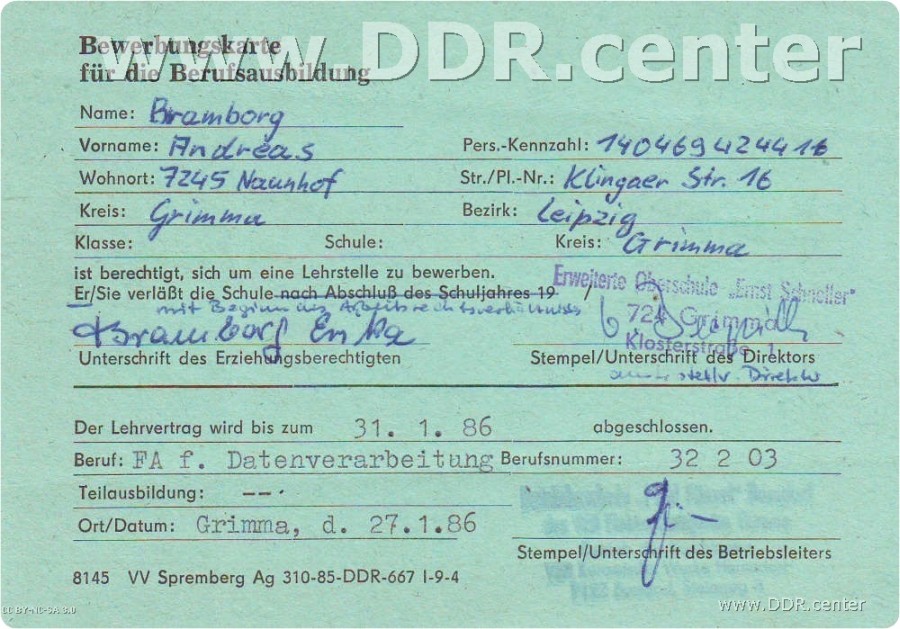 www.DDR.center
Bewerbungskarte
für die Berufsausbildung
Name: Bramborg
Vorname: Andreas Pers.-Kennzahl: 140469424416
Wohnort: 7245 Naunhof Str./Pl.-Nr.: Klingaer Str. 16
Kreis: Grimma Bezirk: Leipzig
Klasse: Schule: Kreis: Grimma
ist berechtigt, sich um eine Lehrstelle zu bewerben.
Erweiterte Oberschule „Ernst Schneller"
Er/Sie verläßt die Schule nach Abschluß des Schuljahres 19 /
mit Beginn des Arbeitsrechtsverhältnisses
724 Grimma
Bramborg Erika
Klosterstraße 1
Unterschrift des Erziehungsberechtigten Stempel/Unterschrift des Direktors
stellv. Direktor
Der Lehrvertrag wird bis zum 31. 1. 86 abgeschlossen.
Beruf: FA f. Datenverarbeitung Berufsnummer: 32 2 03
Teilausbildung: --- .
Ort/Datum: Grimma, d. 27.1.86
Stempel/Unterschrift des Betriebsleiters
8145 VV Spremberg Ag 310-85-DDR-667 I-9-4
CC BY-NC-SA 3.0
www.DDR.center